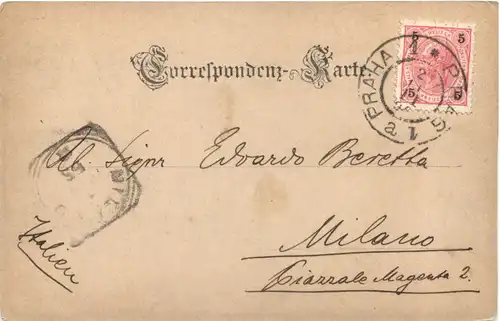 5 5
5 5
PRAHA 1 * PRAG 1
a
Correspondenz-Karte.
Al. Signr Edoardo Beretta
Milano
Piazzale Magenta 2.
Italien